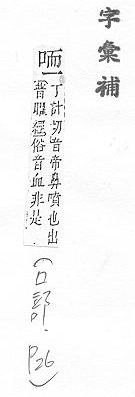 字彙補
丁計切音帝鼻噴也出
普曜經俗音血非是
(口部.P26)